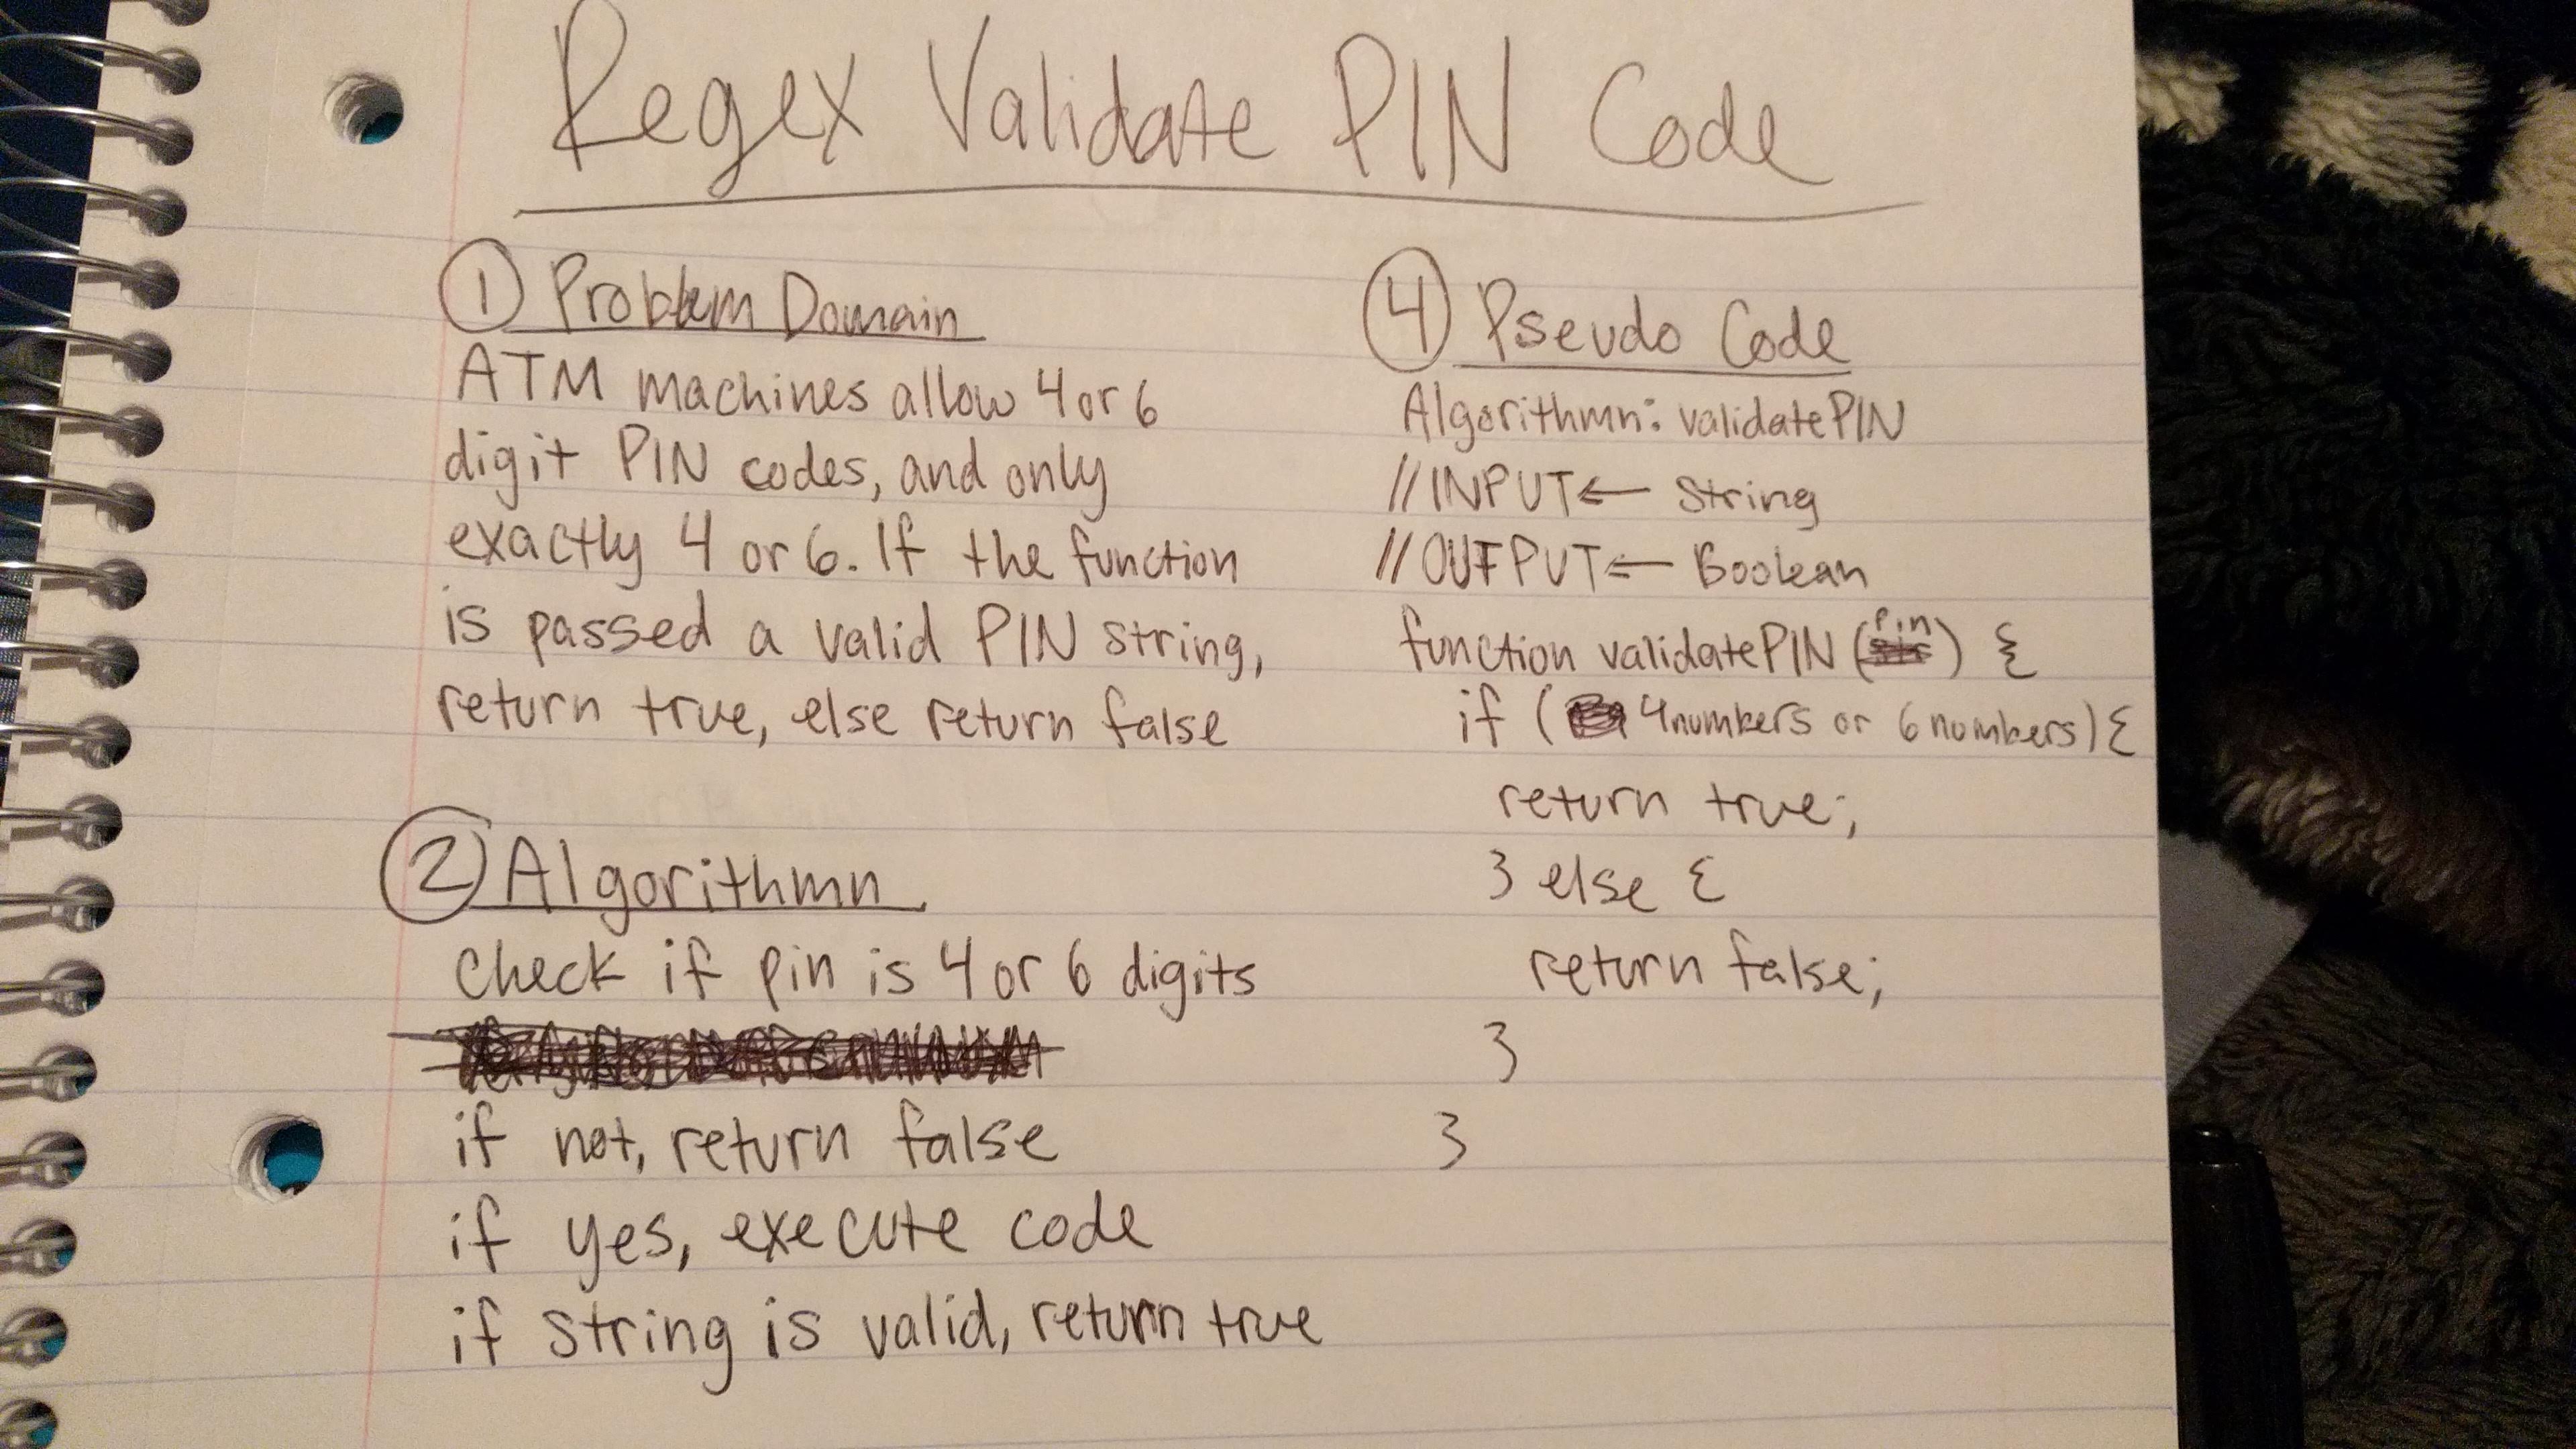 Regex Validate PIN Code
① Problem Domain
ATM machines allow 4 or 6
digit PIN codes, and only
exactly 4 or 6. If the function
is passed a valid PIN string,
return true, else return false
② Algorithmn
Check if pin is 4 or 6 digits
if not, return false
if yes, execute code
if string is valid, return true
④ Pseudo Code
Algorithmn: validatePIN
//INPUT ← String
//OUTPUT ← Boolean
function validatePIN (pin) {
if (4numbers or 6 numbers) {
return true;
} else {
return false;
}
}